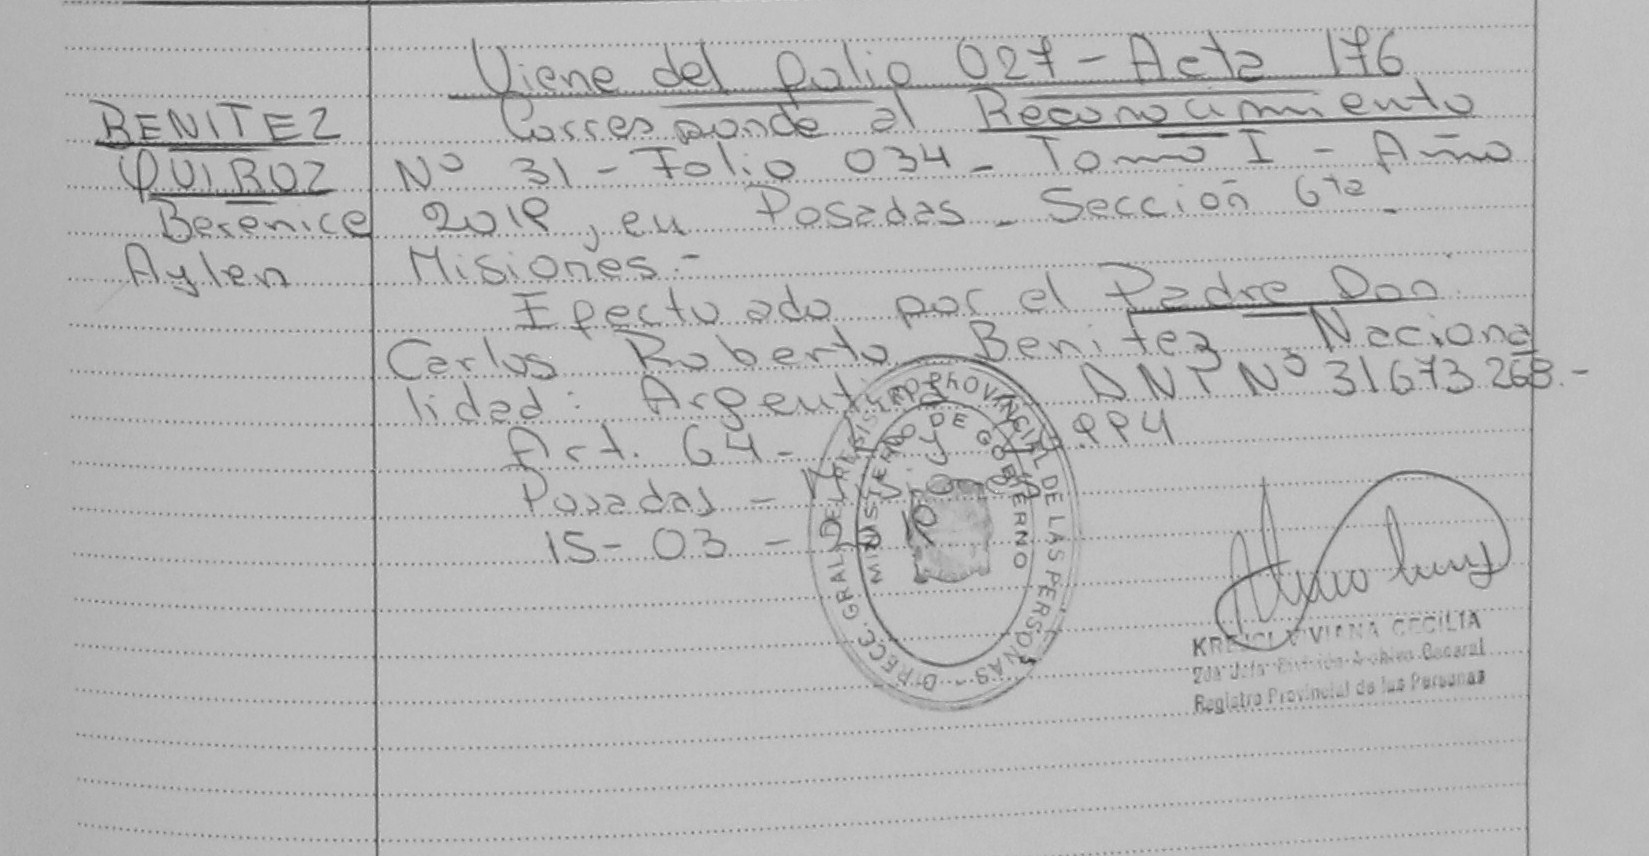 Viene del folio 027 - Acta 176
Corresponde al Reconocimiento
Nº 31 - Folio 034 - Tomo I - Año
2018, en Posadas - Sección 6ta -
Misiones.-
Efectuado por el Padre Don
Carlos Roberto Benitez Naciona
lidad: Argentina DNI Nº 31673268.-
Art. 64 - y
Posadas - Misiones
15-03-2018
BENITEZ
QUIROZ
Berenice
Aylen
DIRECC. GRAL. DEL REGISTRO PROVINCIAL DE LAS PERSONAS
MINISTERIO DE GOBIERNO
VIVIANA CECILIA
División Archivo General
Registro Provincial de las Personas